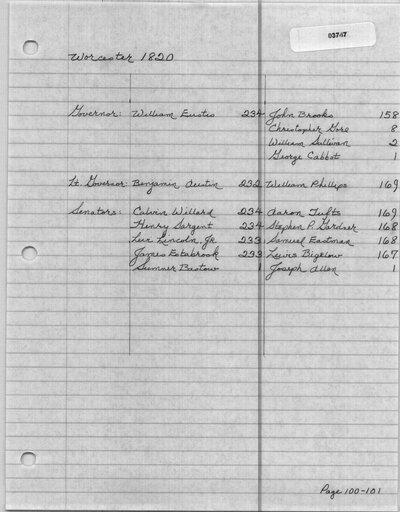 03747
Worcester 1820
Governor: William Eustis 234 John Brooks 158
Christopher Gore 8
William Sullivan 2
George Cabbot 1
Lt. Governor: Benjamin Austin 232 William Phillips 169
Senators: Calvin Willard 234 Aaron Tufts 169
Henry Sargent 234 Stephen P. Gardner 168
Levi Lincoln, Jr. 233 Samuel Eastman 168
James Estabrook 233 Lewis Bigelow 167
Sumner Bastow 1 Joseph Allen 1
Page 100-101